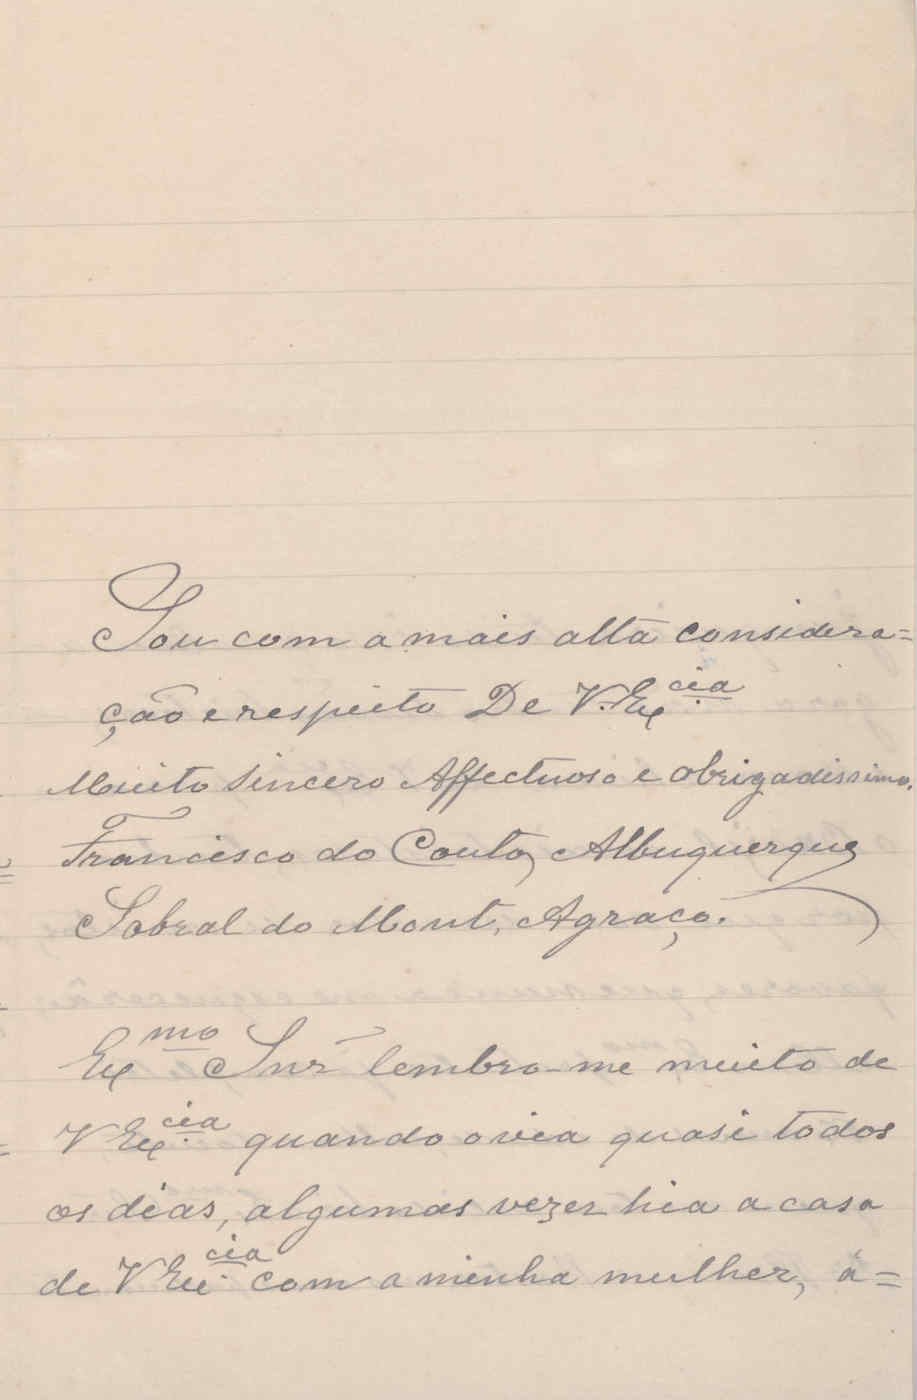 Sou com a mais alta considera=
ção e respeito De V. Ex.cia
Muito Sincero Affectuoso e obrigadissimo.
Francisco do Couto, Albuquerque
Sobral do Mont, Agraço.
Exmo Snr lembro-me muito de
V Ex.cia quando o via quasi todos
os dias, algumas vezes hia a casa
de V Ex.cia com a minha mulher, á=